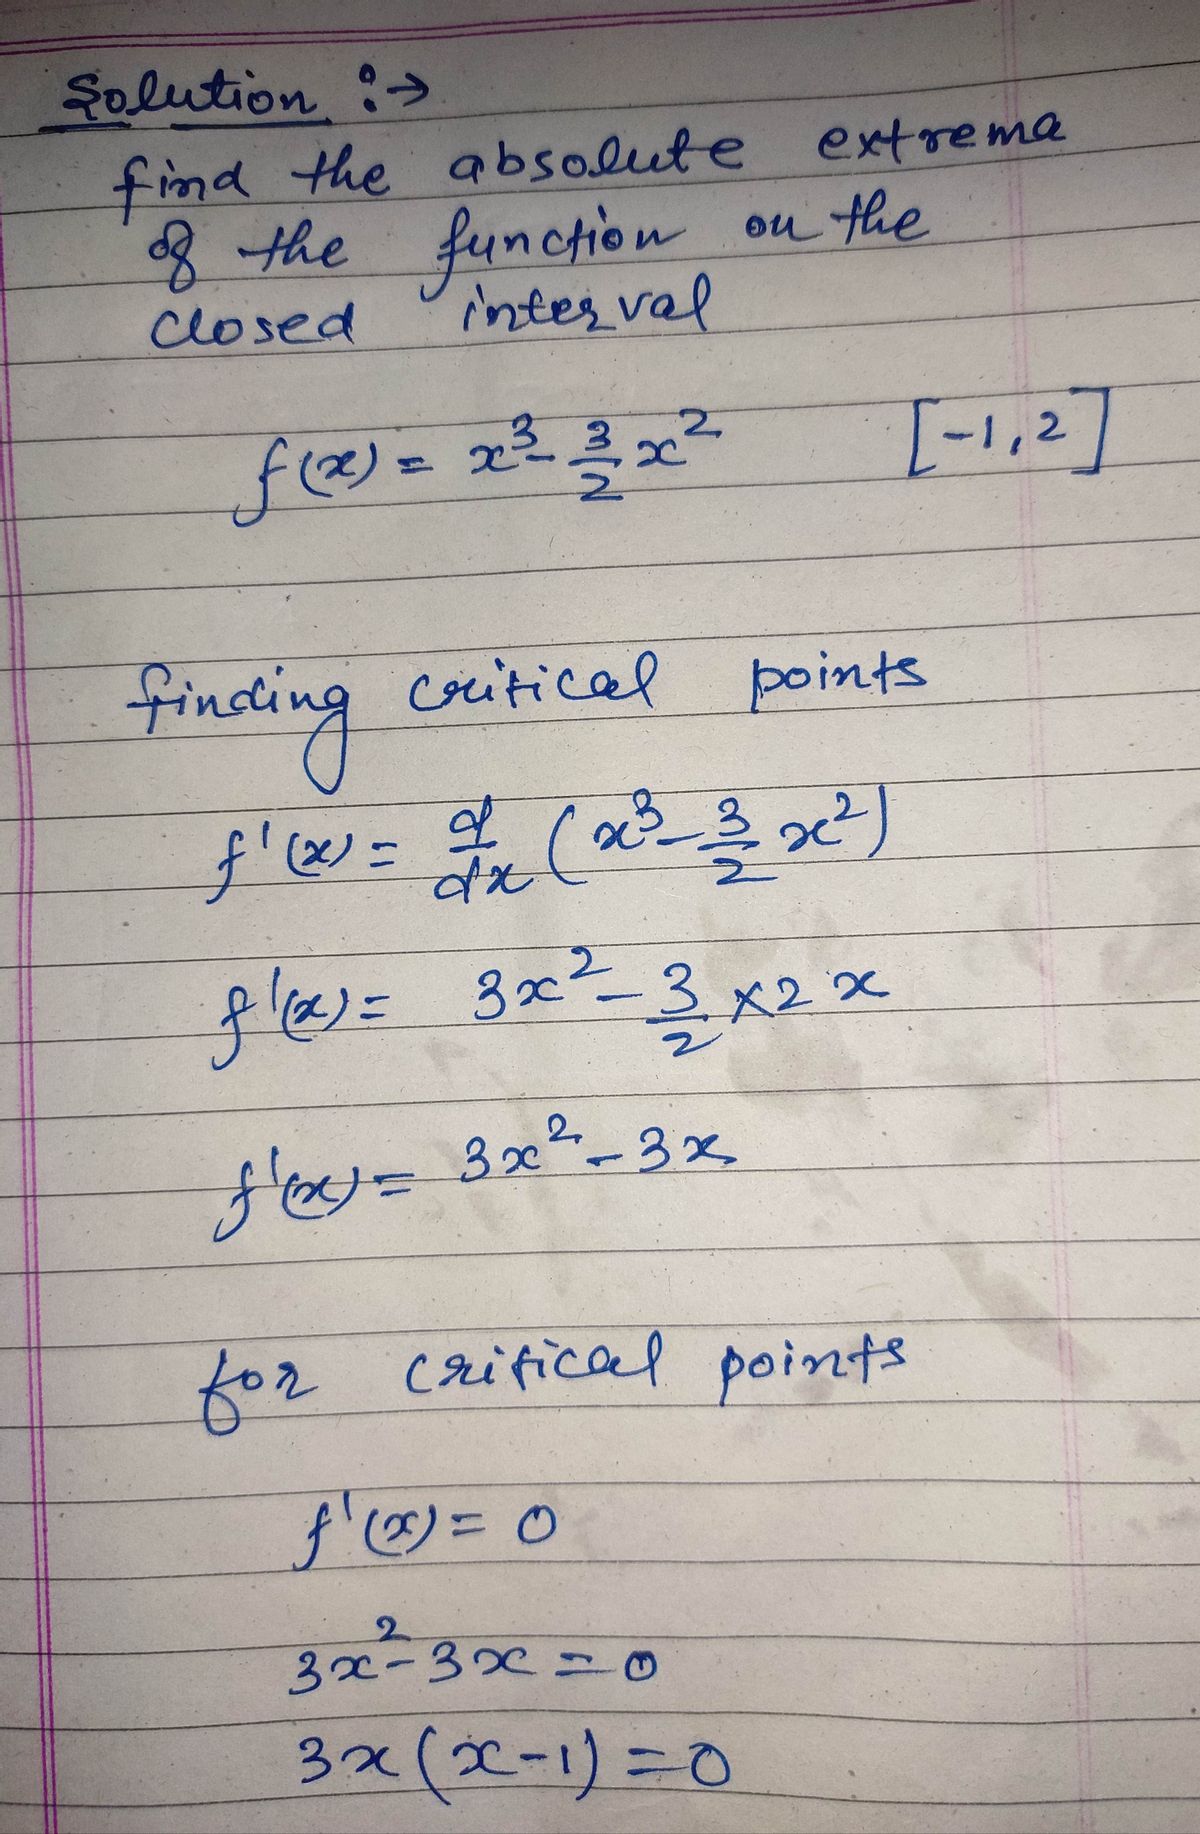 Solution :→
find the absolute extrema
of the function on the
closed interval
f(x) = x³ - 3/2 x² [-1, 2]
finding critical points
f'(x) = d/dx (x³ - 3/2 x²)
f'(x) = 3x² - 3/2 × 2x
f'(x) = 3x² - 3x
for critical points
f'(x) = 0
3x² - 3x = 0
3x(x-1) = 0